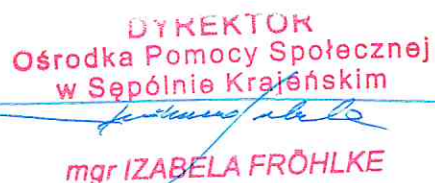 DYREKTOR
Ośrodka Pomocy Społecznej
w Sępólnie Krajeńskim
mgr IZABELA FRÖHLKE